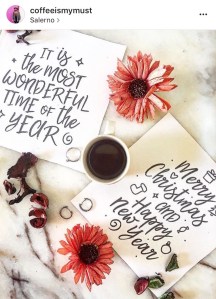 coffeeismymust
Salerno >
IT is
the MOST
WONDERFUL
TIME OF the
YEAR
Merry
Christmas
AND
Happy
New Year